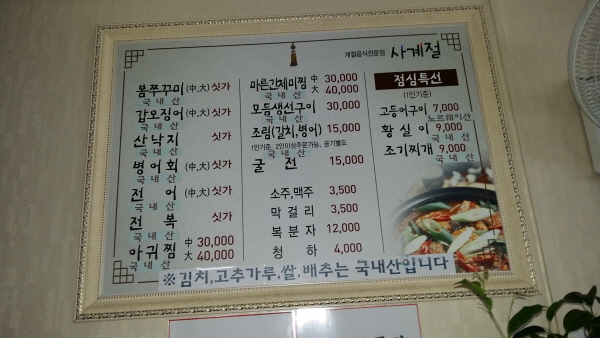 계절음식전문점 사계절
봄쭈꾸미 (中,大) 싯가
국내산
갑오징어 (中,大) 싯가
국내산
산낙지 싯가
국내산
병어회 (中,大) 싯가
국내산
전어 (中,大) 싯가
국내산
전복 싯가
국내산
아귀찜 中 30,000
국내산 大 40,000
마른간재미찜 中 30,000
국내산 大 40,000
모듬생선구이 30,000
국내산
조림(갈치,병어) 15,000
국내산
1인기준, 2인이상주문가능, 공기별도
굴전 15,000
국내산
소주,맥주 3,500
막걸리 3,500
복분자 12,000
청하 4,000
점심특선
(1인기준)
고등어구이 7,000
노르웨이산
황실이 9,000
국내산
조기찌개 9,000
국내산
※김치,고추가루,쌀,배추는 국내산입니다